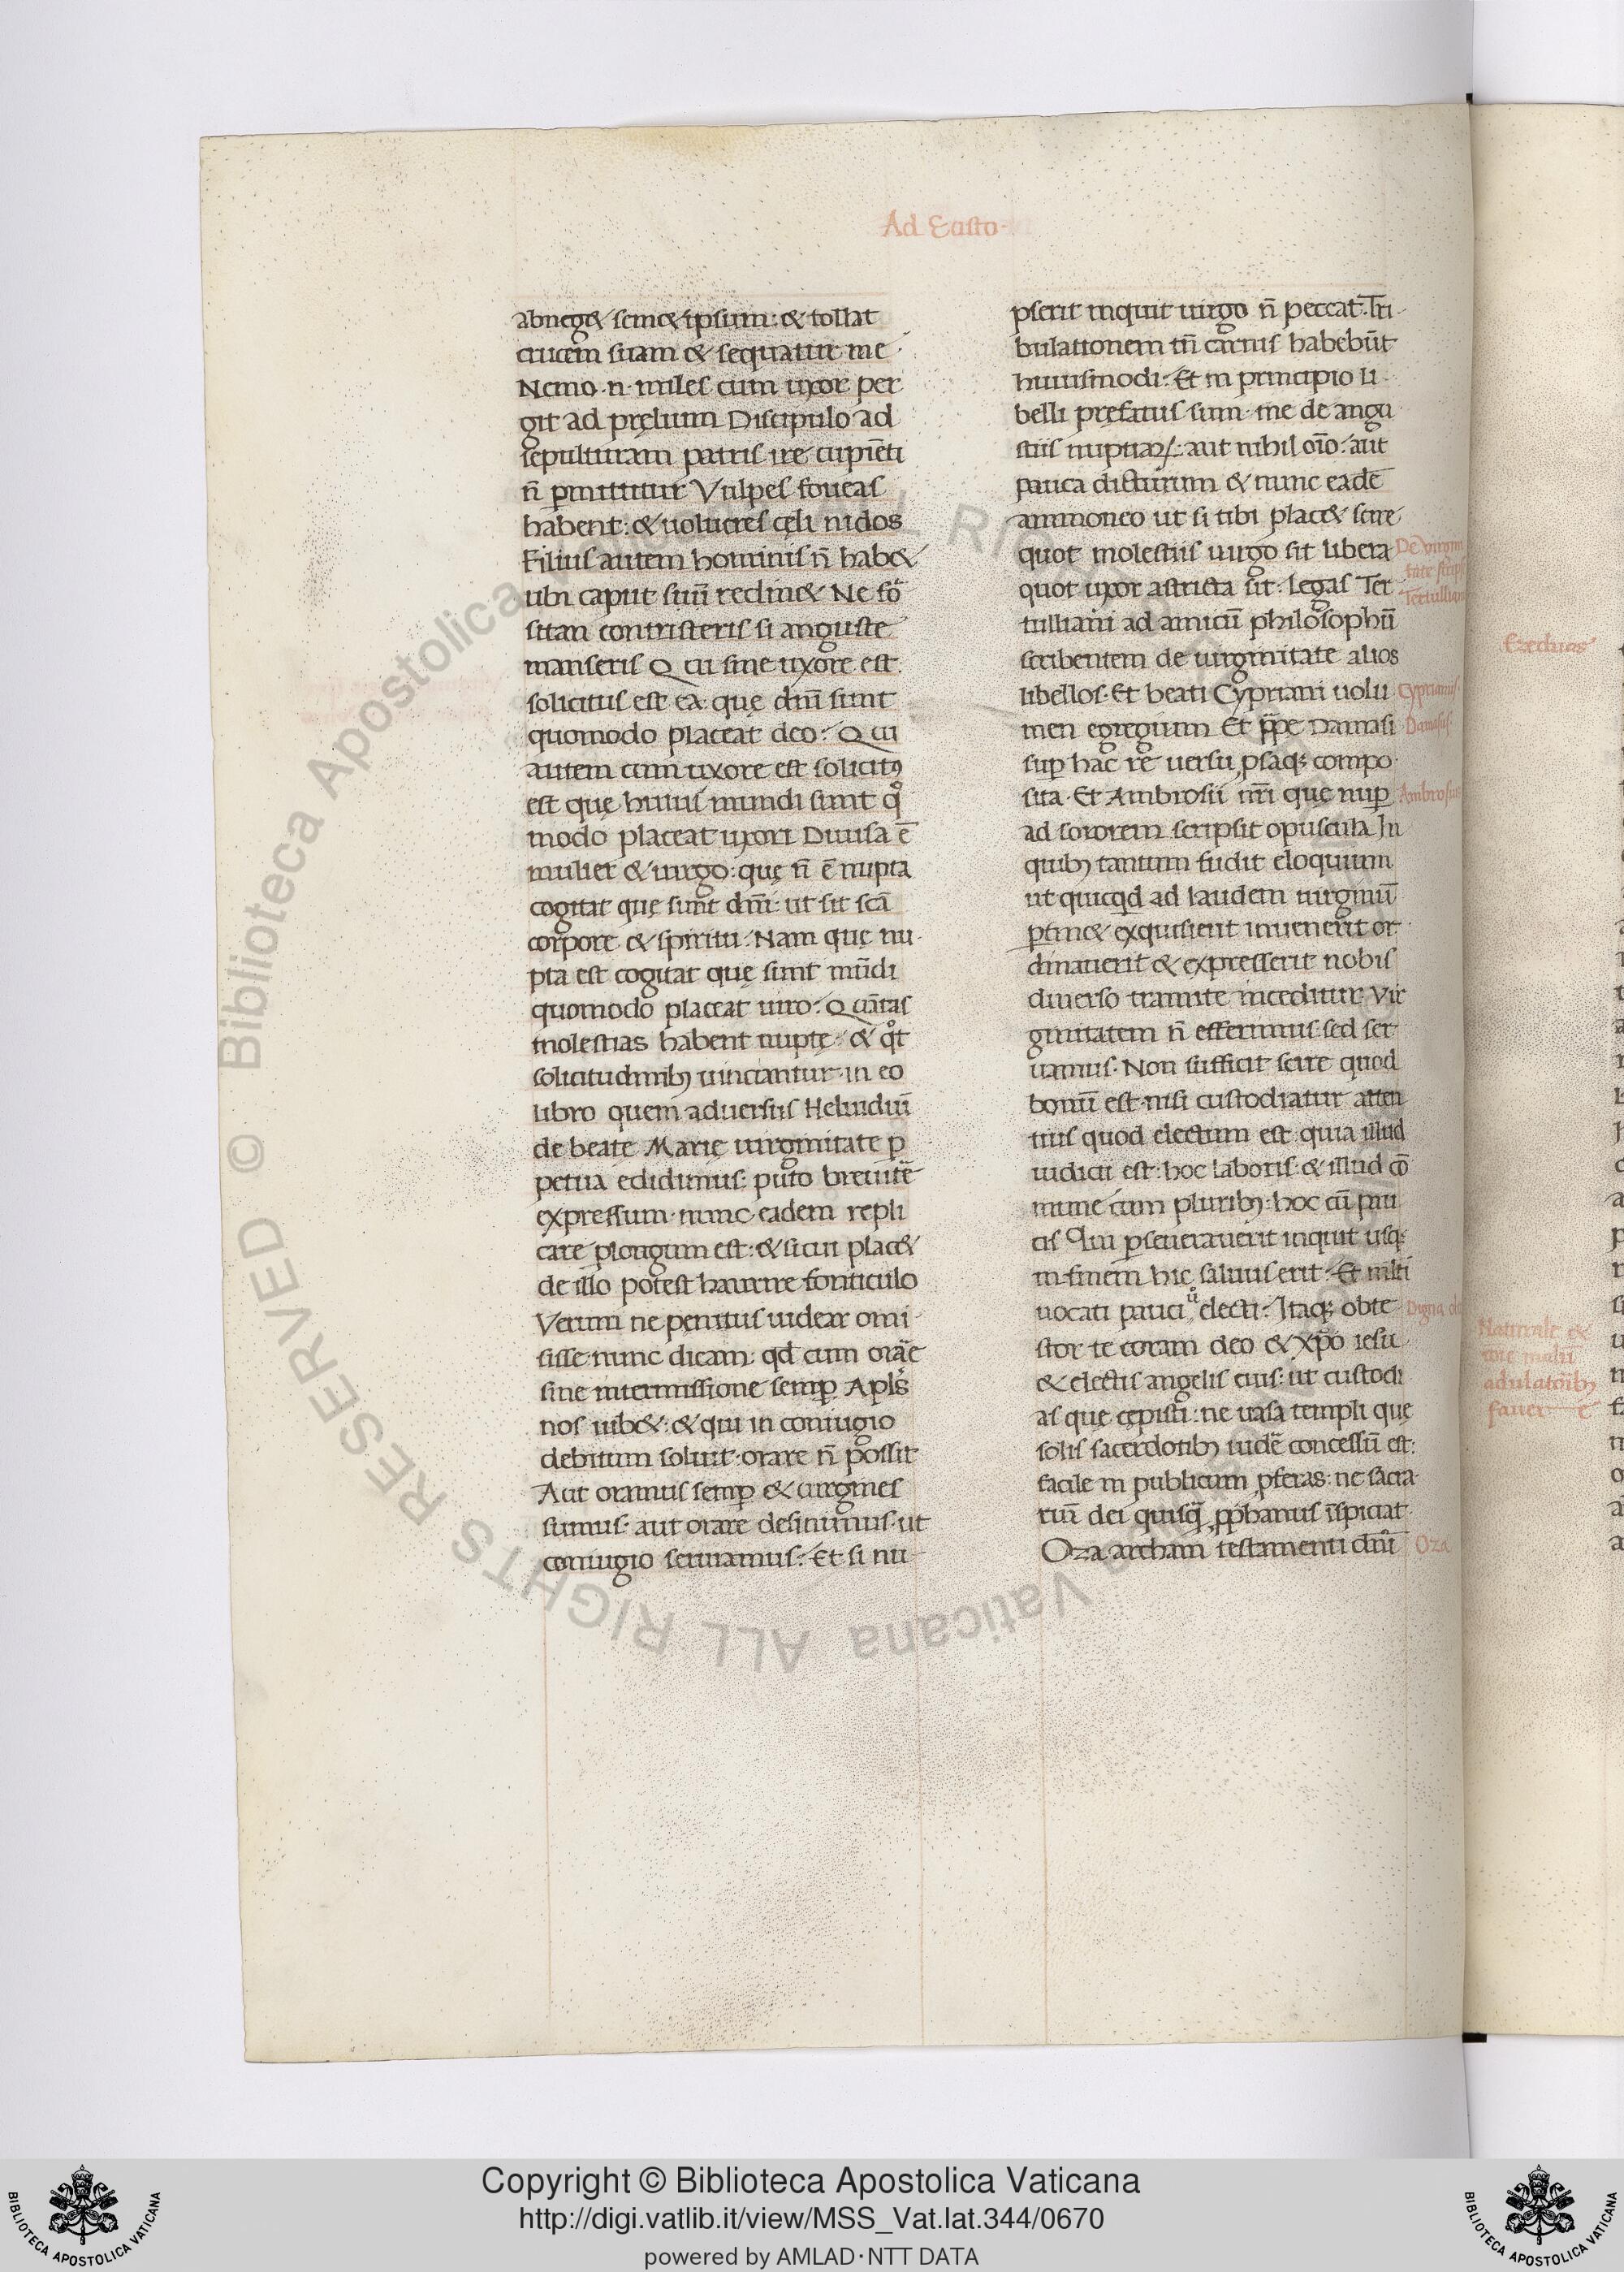 Ad Eusto
abneg& sem& ipsum: & tollat
crucem suam & sequatur me
Nemo .n. miles cum uxor per
git ad pręlium Discipulo ad
sepulturam patris ire cupiēti
n̄ pmittitur Vulpes foueas
habent: & uolucres cęli nidos
Filius autem hominis n̄ hab&
ubi caput suū reclin& Ne for
sitan contristeris si anguste
manseris Qui sine uxore est
solicitus est ea quę dn̄i sunt
quomodo placeat deo: Qui
autem cum uxore est solicitꝯ
est quę huius mundi sunt qͦ
modo placeat uxori Diuisa ē
mulier & uirgo: quę n̄ ē nupta
cogitat quę sunt dn̄i: ut sit sc̄a
corpore & spiritu. Nam quę nu
pta est cogitat quę sunt mūdi
quomodo placeat uiro: Quātas
molestias habent nuptę & qͦt
solicitudinibꝫ uinciantur in eo
libro quem aduersus Heluidiū
de beate Marię uirginitate p̱
petua edidimus: puto breuitē
expressum nunc eadem repli
care plongum est: & sicui plac&
de illo potest haurire fonticulo
Verum ne penitus uidear omi
sisse nunc dicam: qd cum orare
sine intermissione semp Apls̄
nos iub&: & qui in coniugio
debitum soluit orare n̄ possit
Aut oramus semp & uirgines
sumus. aut orare desinimus ut
coniugio seruiamus: Et si nu
pserit inquit uirgo n̄ peccat: Tri
bulationem tn̄ carnis habebūt
huiusmodi: Et in principio li
belli pręfatus sum me de angu
stiis nuptiaꝝ: aut nihil oīo aut
pauca dicturum & nunc eadē
ammoneo ut si tibi plac& scire
quot molestiis uirgo sit libera
quot uxor astricta sit. Legas Ter
tulliani ad amicū philosophū
scribentem de uirginitate alios
libellos. Et beati Cypriani uolu
men egregium Et pp̄e Damasi
sup hac re uersu psaqꝫ compo
sita. Et Ambrosii nr̄i quę nup
ad sororem scripsit opuscula In
quibꝫ tantum fudit eloquium
ut quicqd ad laudem uirginū
ptin& exquisierit inuenerit or
dinauerit & expresserit nobis
diuerso tramite inceditur Vir
ginitatem n̄ efferimus sed ser
uamus. Non sufficit scire quod
bonū est nisi custodiatur atten
tius quod electum est quia illud
iudicii est: hoc laboris: & illud cō
mune cum pluribꝫ: hoc cū pau
cis Qui pseuerauerit inquit usqꝫ
in finem hic saluus erit: Et mlti
uocati pauci ů electi: Itaqꝫ obte
stor te coram deo & xp̄o iesu
& electis angelis eius: ut custodi
as quę cępisti: ne uasa templi quę
solis sacerdotibꝫ uidē concessū est:
facile in publicum pferas: ne sacra
riū dei quisq̄ pphanus īspiciat
Oza archam testamenti dn̄i
De uirgini
tate scrips
Tertullian
Cyprianus
Damasus
Ambrosius
Digna
Oza
Naturale
adulatoribꝫ
Copyright © Biblioteca Apostolica Vaticana
http://digi.vatlib.it/view/MSS_Vat.lat.344/0670
powered by AMLAD·NTT DATA
BIBLIOTECA APOSTOLICA VATICANA
BIBLIOTECA APOSTOLICA VATICANA
© Biblioteca Apostolica Vaticana ALL RIGHTS RESERVED